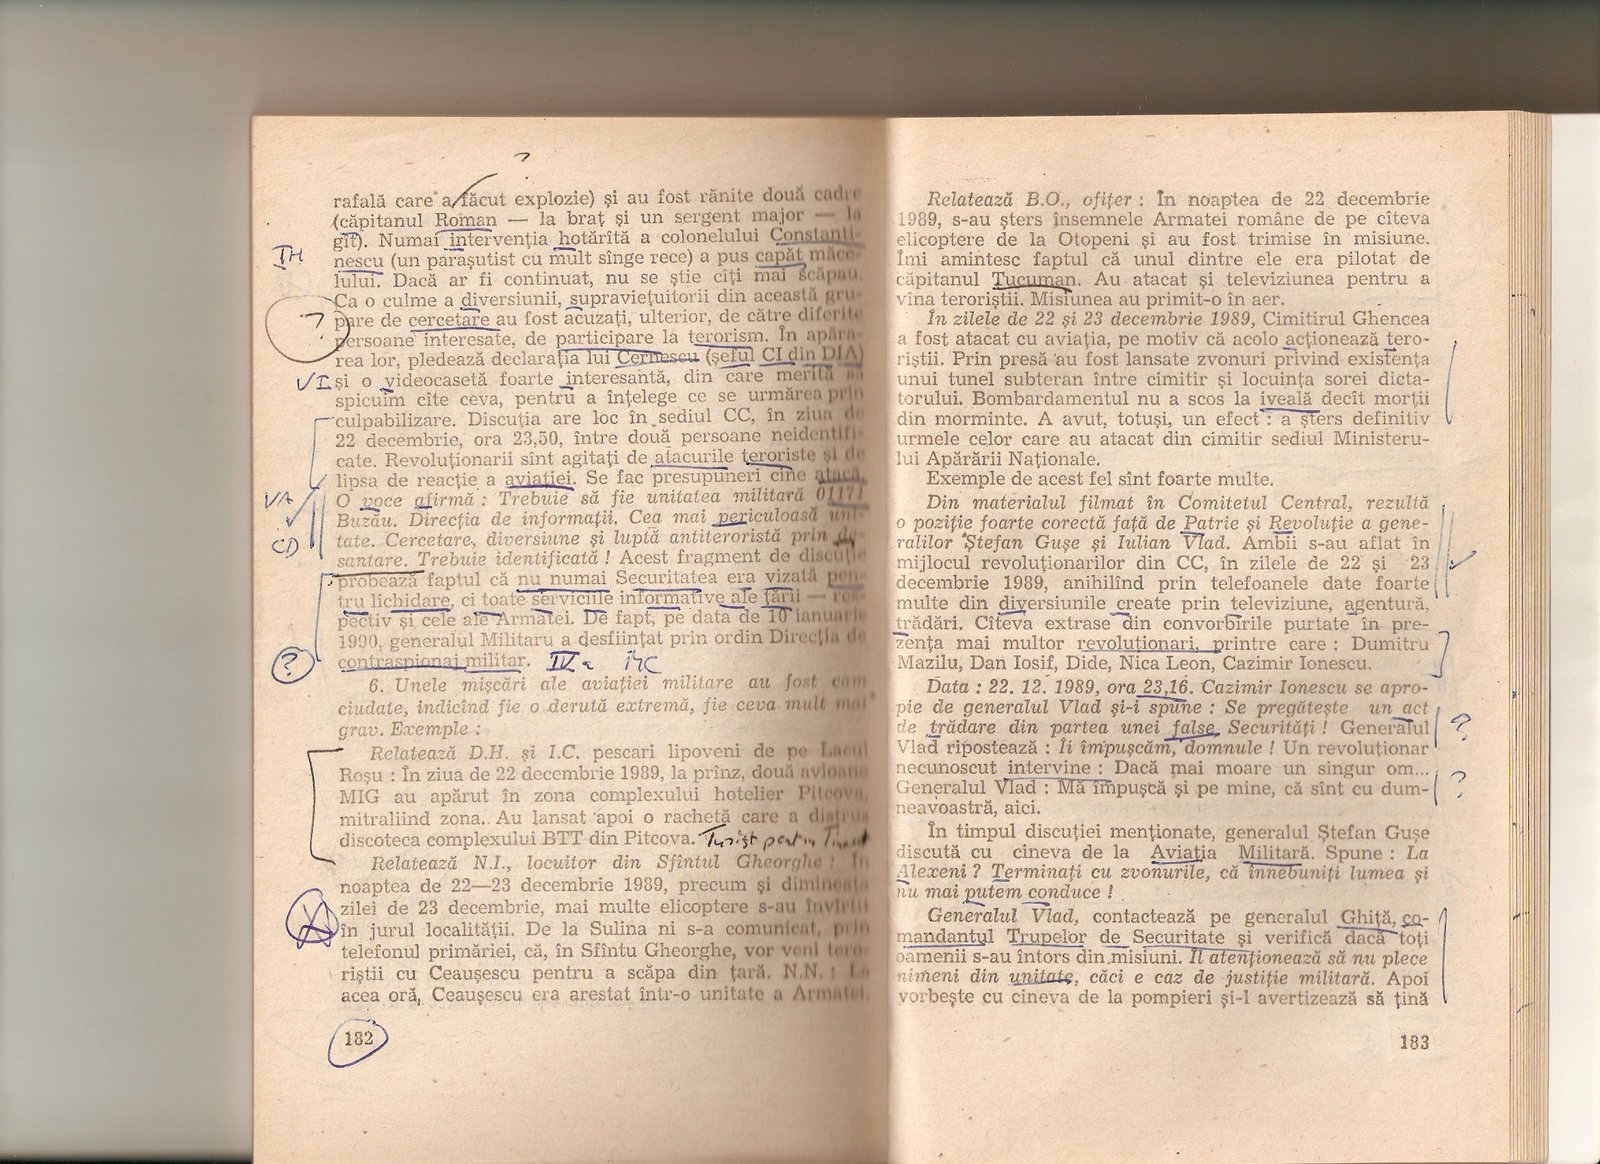 rafală care a făcut explozie) și au fost rănite două cadre
(căpitanul Roman — la braț și un sergent major — la
gît). Numai intervenția hotărîtă a colonelului Constanti-
nescu (un parașutist cu mult sînge rece) a pus capăt măce-
lului. Dacă ar fi continuat, nu se știe cîți mai scăpau.
Ca o culme a diversiunii, supraviețuitorii din această gru-
pare de cercetare au fost acuzați, ulterior, de către diferite
persoane interesate, de participare la terorism. În apăra-
rea lor, pledează declarația lui Cernescu (șeful CI din DIA)
și o videocasetă foarte interesantă, din care merită să
spicuim cîte ceva, pentru a înțelege ce se urmărea prin
culpabilizare. Discuția are loc în sediul CC, în ziua de
22 decembrie, ora 23,50, între două persoane neidentifi-
cate. Revoluționarii sînt agitați de atacurile teroriste și de
lipsa de reacție a aviației. Se fac presupuneri cine atacă.
O voce afirmă : Trebuie să fie unitatea militară 01171
Buzău. Direcția de informații. Cea mai periculoasă uni-
tate. Cercetare, diversiune și luptă antiteroristă prin de-
santare. Trebuie identificată ! Acest fragment de discuție
probează faptul că nu numai Securitatea era vizată pen-
tru lichidare, ci toate serviciile informative ale țării — res-
pectiv și cele ale Armatei. De fapt, pe data de 10 ianuarie
1990, generalul Militaru a desființat prin ordin Direcția de
contraspionaj militar.
6. Unele mișcări ale aviației militare au fost cam
ciudate, indicînd fie o derută extremă, fie ceva mult mai
grav. Exemple :
Relatează D.H. și I.C. pescari lipoveni de pe Lacul
Roșu : În ziua de 22 decembrie 1989, la prînz, două avioane
MIG au apărut în zona complexului hotelier Pitcova,
mitraliind zona. Au lansat apoi o rachetă care a distrus
discoteca complexului BTT din Pitcova.
Relatează N.I., locuitor din Sfîntul Gheorghe : În
noaptea de 22—23 decembrie 1989, precum și dimineața
zilei de 23 decembrie, mai multe elicoptere s-au învîrtit
în jurul localității. De la Sulina ni s-a comunicat, prin
telefonul primăriei, că, în Sfîntu Gheorghe, vor veni tero-
riștii cu Ceaușescu pentru a scăpa din țară. N.N. : La
acea oră, Ceaușescu era arestat într-o unitate a Armatei.
182
IH
?
VI
VA
CD
?
Relatează B.O., ofițer : În noaptea de 22 decembrie
1989, s-au șters însemnele Armatei române de pe cîteva
elicoptere de la Otopeni și au fost trimise în misiune.
Îmi amintesc faptul că unul dintre ele era pilotat de
căpitanul Tucuman. Au atacat și televiziunea pentru a
vîna teroriștii. Misiunea au primit-o în aer.
În zilele de 22 și 23 decembrie 1989, Cimitirul Ghencea
a fost atacat cu aviația, pe motiv că acolo acționează tero-
riștii. Prin presă au fost lansate zvonuri privind existența
unui tunel subteran între cimitir și locuința sorei dicta-
torului. Bombardamentul nu a scos la iveală decît morții
din morminte. A avut, totuși, un efect : a șters definitiv
urmele celor care au atacat din cimitir sediul Ministeru-
lui Apărării Naționale.
Exemple de acest fel sînt foarte multe.
Din materialul filmat în Comitetul Central, rezultă
o poziție foarte corectă față de Patrie și Revoluție a gene-
ralilor Ștefan Gușe și Iulian Vlad. Ambii s-au aflat în
mijlocul revoluționarilor din CC, în zilele de 22 și 23
decembrie 1989, anihilînd prin telefoanele date foarte
multe din diversiunile create prin televiziune, agentură,
trădări. Cîteva extrase din convorbirile purtate în pre-
zența mai multor revoluționari, printre care : Dumitru
Mazilu, Dan Iosif, Dide, Nica Leon, Cazimir Ionescu.
Data : 22. 12. 1989, ora 23,16. Cazimir Ionescu se apro-
pie de generalul Vlad și-i spune : Se pregătește un act
de trădare din partea unei false Securități ! Generalul
Vlad ripostează : Îi împușcăm, domnule ! Un revoluționar
necunoscut intervine : Dacă mai moare un singur om...
Generalul Vlad : Mă împușcă și pe mine, că sînt cu dum-
neavoastră, aici.
În timpul discuției menționate, generalul Ștefan Gușe
discută cu cineva de la Aviația Militară. Spune : La
Alexeni ? Terminați cu zvonurile, că înnebuniți lumea și
nu mai putem conduce !
Generalul Vlad, contactează pe generalul Ghiță, co-
mandantul Trupelor de Securitate și verifică dacă toți
oamenii s-au întors din misiuni. Îl atenționează să nu plece
nimeni din unitate, căci e caz de justiție militară. Apoi
vorbește cu cineva de la pompieri și-l avertizează să țină
183
?
?